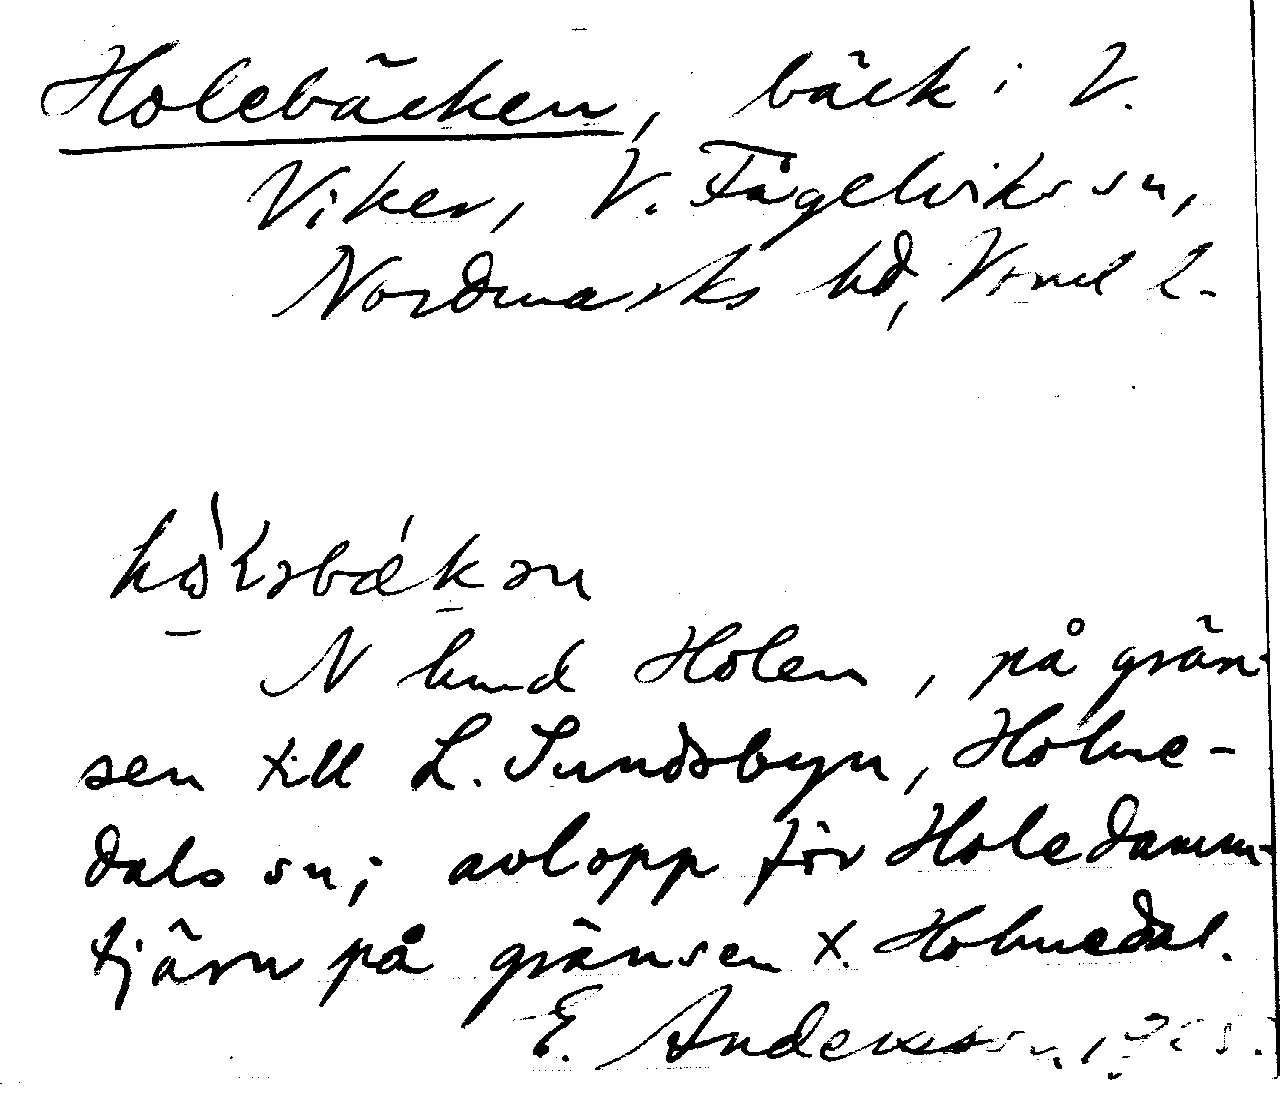 Holebäcken, bäck i V.
Viker, V. Fågelviks sn,
Nordmarks hd, Värml l.
N kind Holen, på grän-
sen till L. Sundsbyn, Holme-
dals sn; avlopp för Holedamm-
tjärn på gränsen t. Holmedal.
E. Andersson